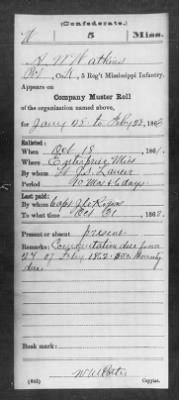 (Confederate.)
W 5 Miss.
A. W. Watkins
Pvt, Co. K, 5 Reg't Mississippi Infantry.
Appears on
Company Muster Roll
of the organization named above,
for Jany to Feby 28, 186
Enlisted:
When Oct 18, 1861.
Where Enterprise Miss
By whom Lt. J. S. Lanier
Period
Last paid:
By whom Capt
To what time Oct 31, 1862.
Present or absent present
Remarks: Commutation due from
27 of Feby 1862 $50 Bounty
due.
Book mark:
(642) Copyist.